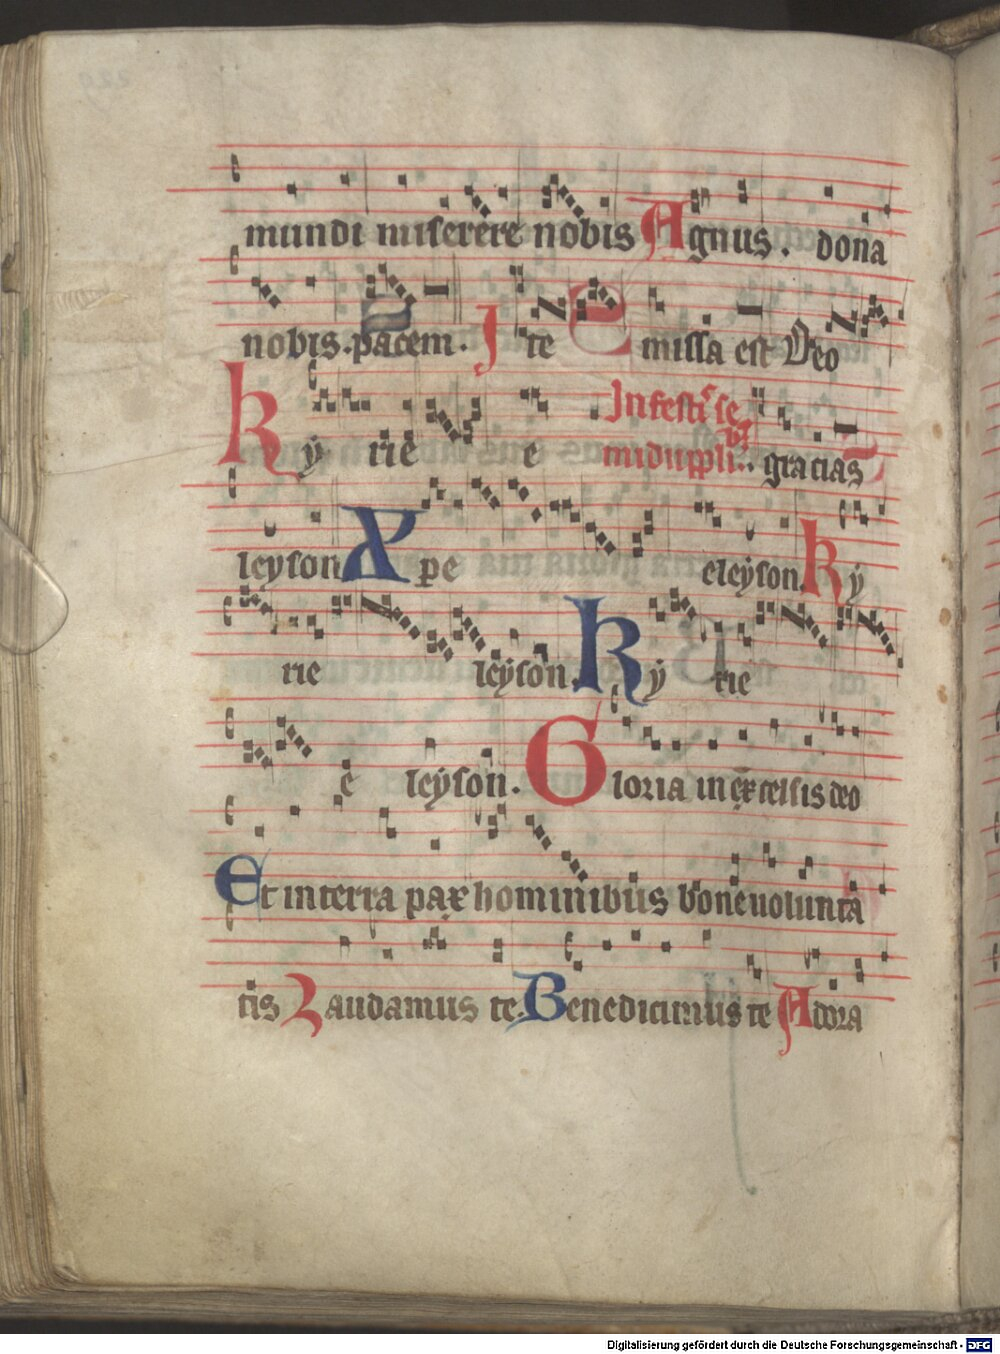 mundi miserere nobis Agnus. dona
nobis. pacem. Ite missa est Deo
Kyrie e In festis se
miduppli. gracias
leyson Xpe eleyson. Ky
rie leyson. Kyrie
e leyson. Gloria in excelsis deo
Et in terra pax hominibus bone volunta
tis Laudamus te. Benedicimus te Adora
Digitalisierung gefördert durch die Deutsche Forschungsgemeinschaft - DFG